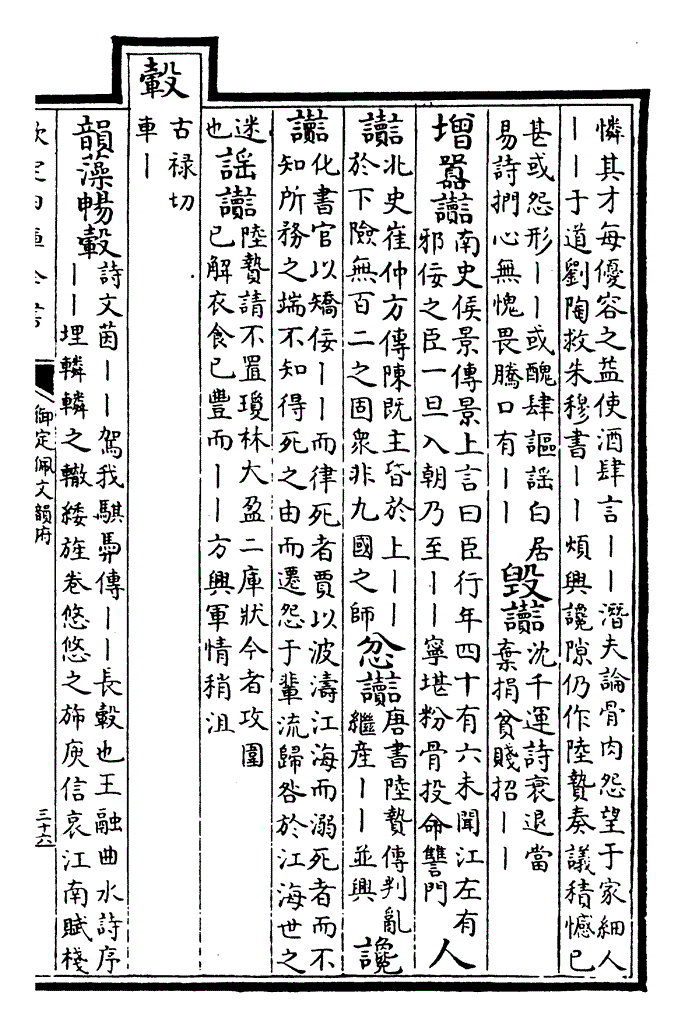 憐其才每優容之益使酒肆言｜｜潛夫論骨肉怨望于家細人
｜｜于道劉陶救朱穆書｜｜煩興讒隙仍作陸贄奏議積憾已
甚或怨形｜｜或醜肆謳謡白居
易詩捫心無愧畏騰口有｜｜
毁讟
沈千運詩衰退當
棄捐貧賤招｜｜
增
囂讟
南史侯景傳景上言曰臣行年四十有六未聞江左有
邪佞之臣一旦入朝乃至｜｜寧堪粉骨投命讐門
人
讟
北史崔仲方傳陳既主昏於上｜｜
於下險無百二之固衆非九國之師
忿讟
唐書陸贄傳判亂
繼産｜｜並興
讒
讟
化書官以矯佞｜｜而律死者賈以波濤江海而溺死者而不
知所務之端不知得死之由而遷怨于輩流歸咎於江海世之
迷
也
謡讟
陸贄請不置瓊林大盈二庫狀今者攻圍
已解衣食已豐而｜｜方興軍情稍沮
轂
古禄切
車｜
韻藻
暢轂
詩文茵｜｜駕我騏馵傳｜｜長轂也王融曲水詩序
｜｜埋轔轔之轍緌旌卷悠悠之斾庾信哀江南賦棧
御定佩文韻府
三十六